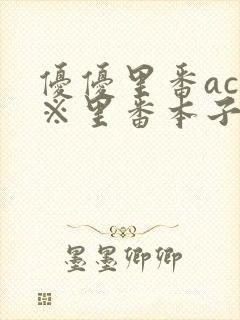 優優里番ac
※里番本子
墨墨卿卿